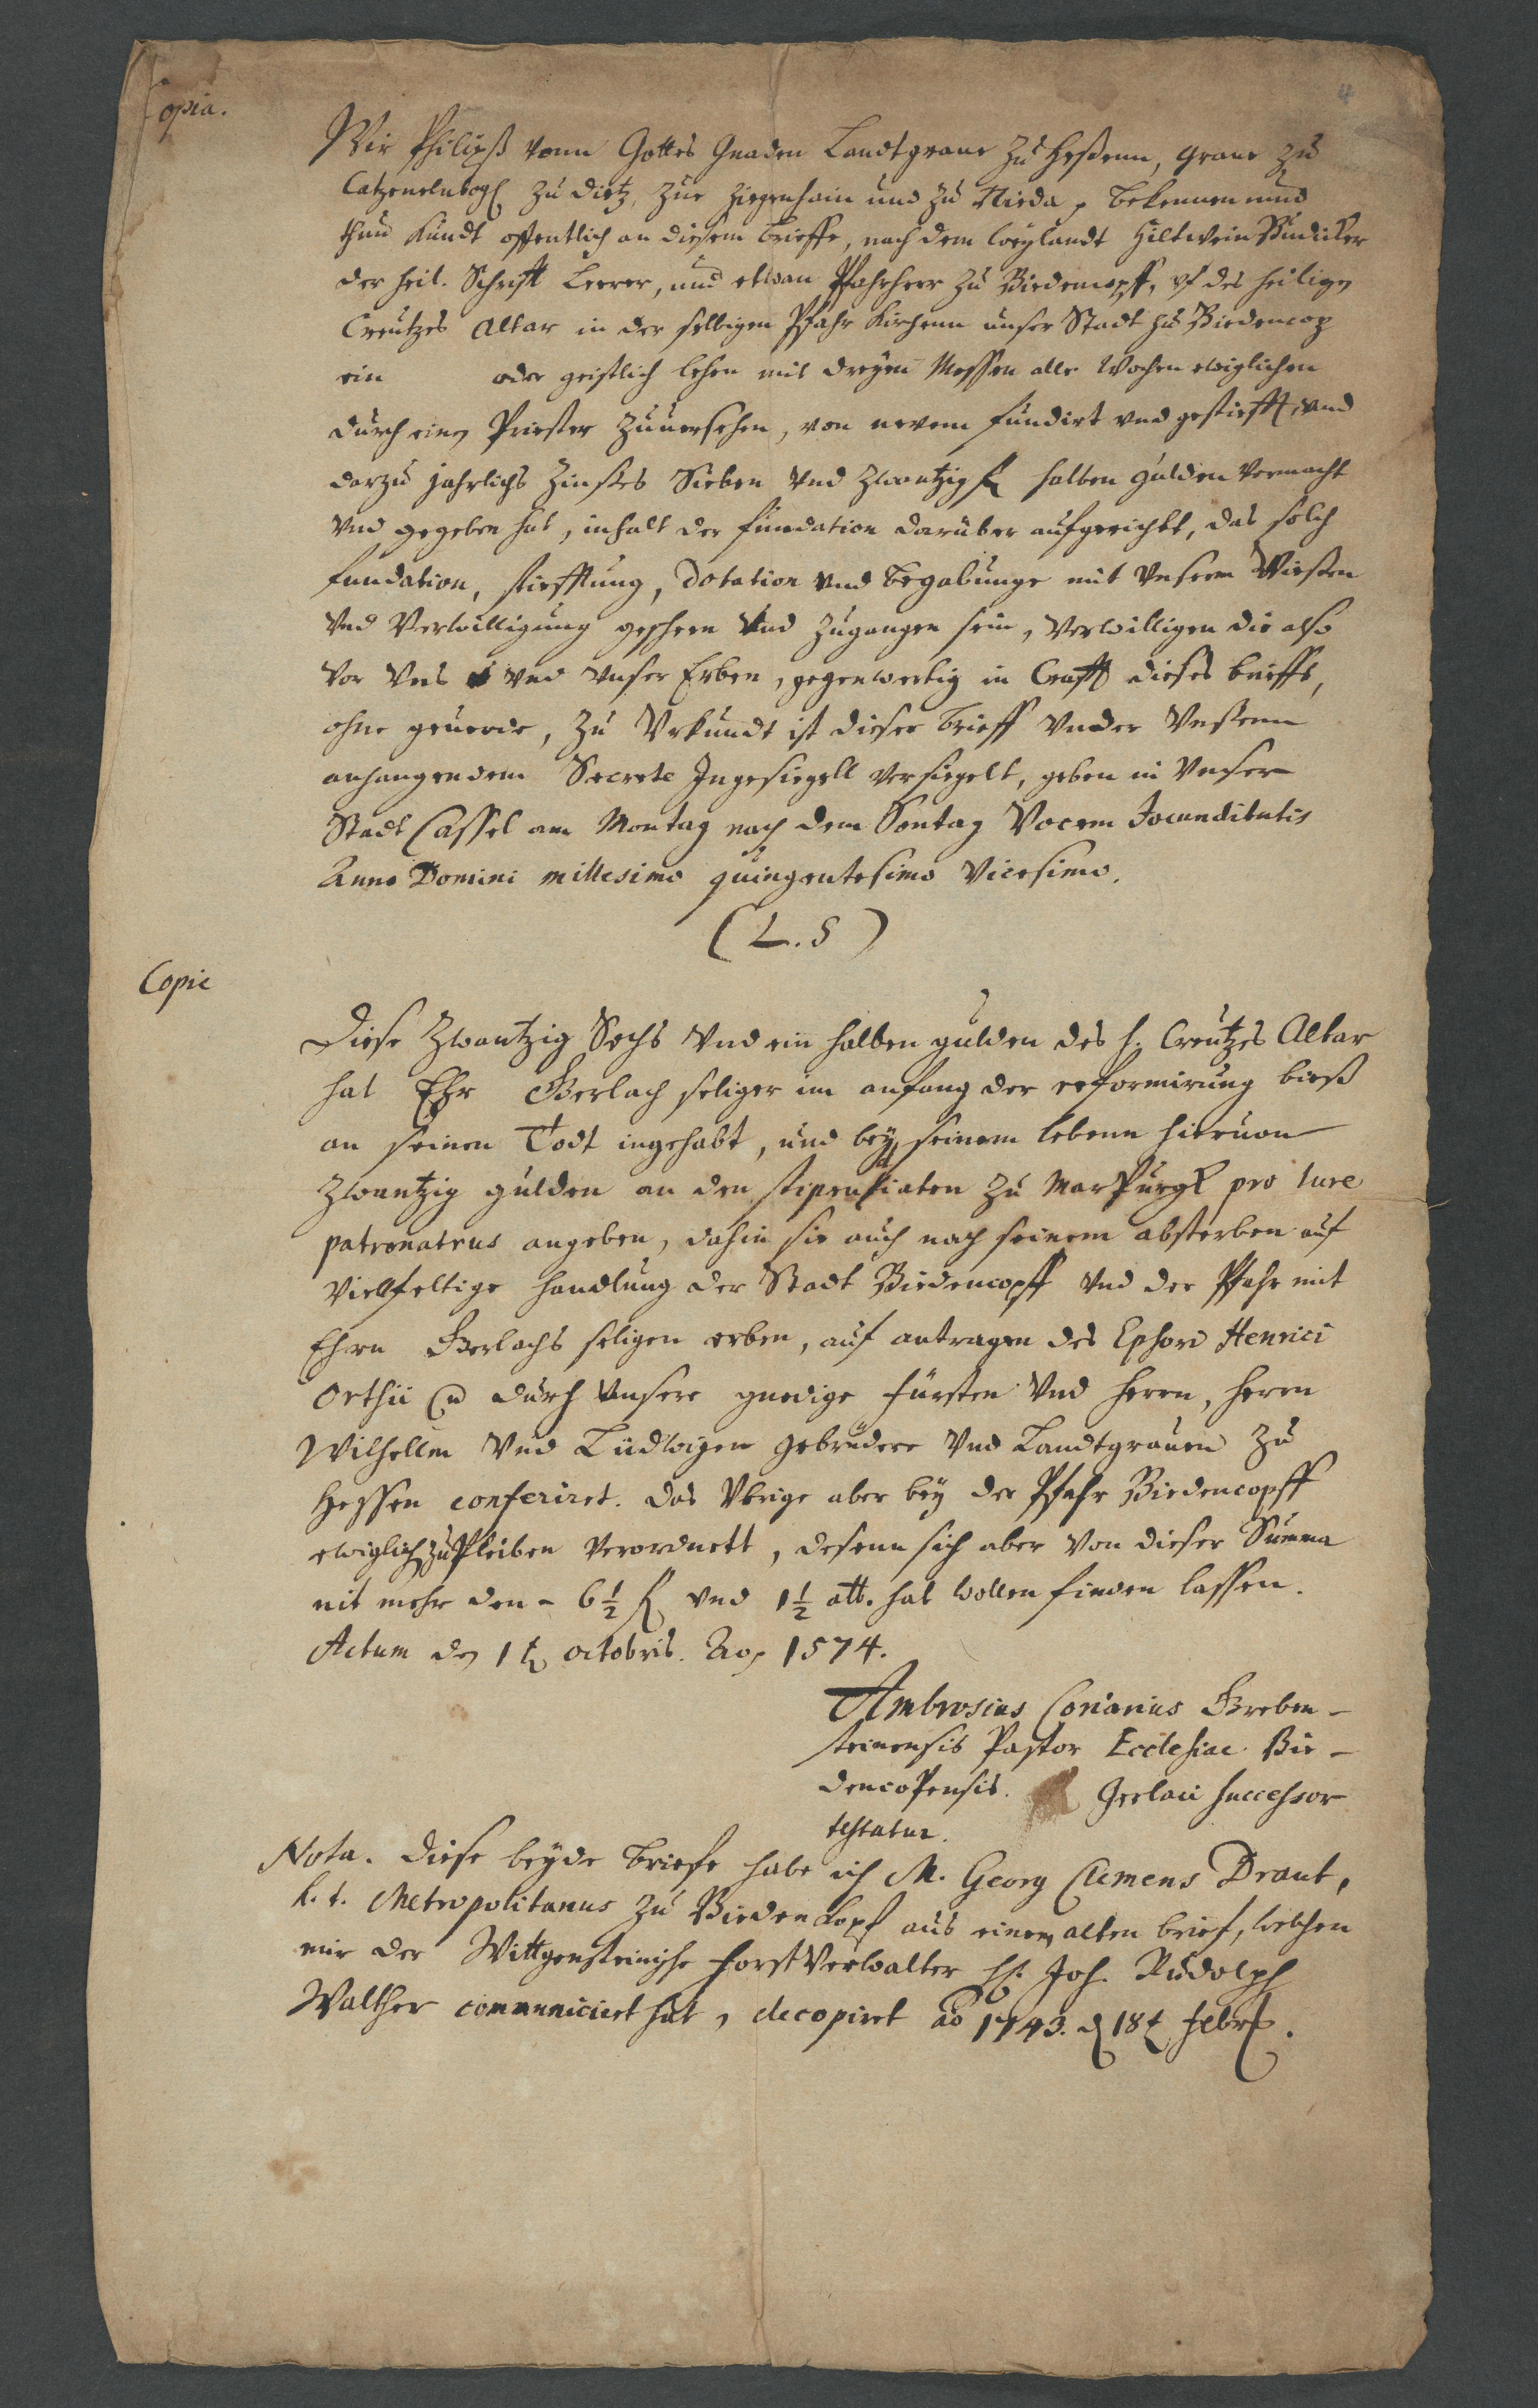 Copia.
4
Wir Philipß vonn Gottes Gnaden Landtgraue zu Heßenn, Graue zu
Catzenelnbog zu Dietz, zue Ziegenhain und zu Nieda, bekennen unnd
thun kundt offentlich an diesem brieffe, nach dem weylandt Hiltwein
der heil. Schrift Leerer, und etwan Pfahrherr zu Biedencopff, uf des heiligen
Creutzes Altar in der selbigen Pfahr Kirchenn unser Stadt zu Biedencop
ein oder geistlich lehen mit dreyen Messen alle Wochen ewiglichen
durch einen Priester zuuersehen, von neuem fundirt und gestiefft, und
darzu jahrlichs Zinses Sieben und zwantzig halben gulden vermacht
und gegeben hat, inhalt der fundation daruber aufgericht, das solch
fundation, stiefftung, Dotation und begabunge mit unserm Wiessen
und Verwilligung gescheen und zugangen sein, verwilligen die also
vor uns und unser Erben, gegenwertig in Crafft dieses brieffs,
ohne geuerde, zu Urkundt ist dieser brieff under unsenn
anhangendem Secrete Ingesiegell versiegelt, geben in unser
Stadt Cassel am Montag nach dem Sontag Vocem Jocunditatis
Anno Domini millesimo quingentesimo vicesimo.
(L.S)
Copie
Diese zwantzig Sechs und ein halben gulden des h. Creutzes Altar
hat Ehr Gerlach seliger im anfang der reformirung bieß
an seinen Todt ingehabt, und bey seinem lebenn hieruon
zwantzig gulden an den stipendiaten zu Marpurgk pro iure
patronatus angeben, dahin sie auch nach seinem absterben auf
vielfeltige handlung der Stadt Biedencopff und der Pfahr mit
Ehrn Gerlachs seligen erben, auf antragen des Ephori Henrici
Orthii durch unsere gnedige fürsten und herrn, herrn
Wilhellm und Ludwigen gebrudere und Landtgrauen zu
Hessen conferiret. Das übrige aber bey der Pfahr Biedencopff
ewiglich zu pleiben verordnett, dessenn sich aber von dieser Summa
nit mehr den - 6 1/2 fl und 1 1/2 alb. hat wollen finden lassen.
Actum den 1t octobris. Ao. 1574.
Ambrosius Corianius Greben-
steinensis Pastor Ecclesiae Bie-
dencopensis. Gerlaci successor
testatur.
Nota. Diese beyde briefe habe ich M. Georg Clemens Draut,
h. t. Metropolitanus zu Biedenkopf aus einem alten brief, welchen
mir der Wittgensteinische Forst Verwalter H. Joh. Rudolph
Walther communiciret hat, decopiret ao 1743. d 18t Febr.